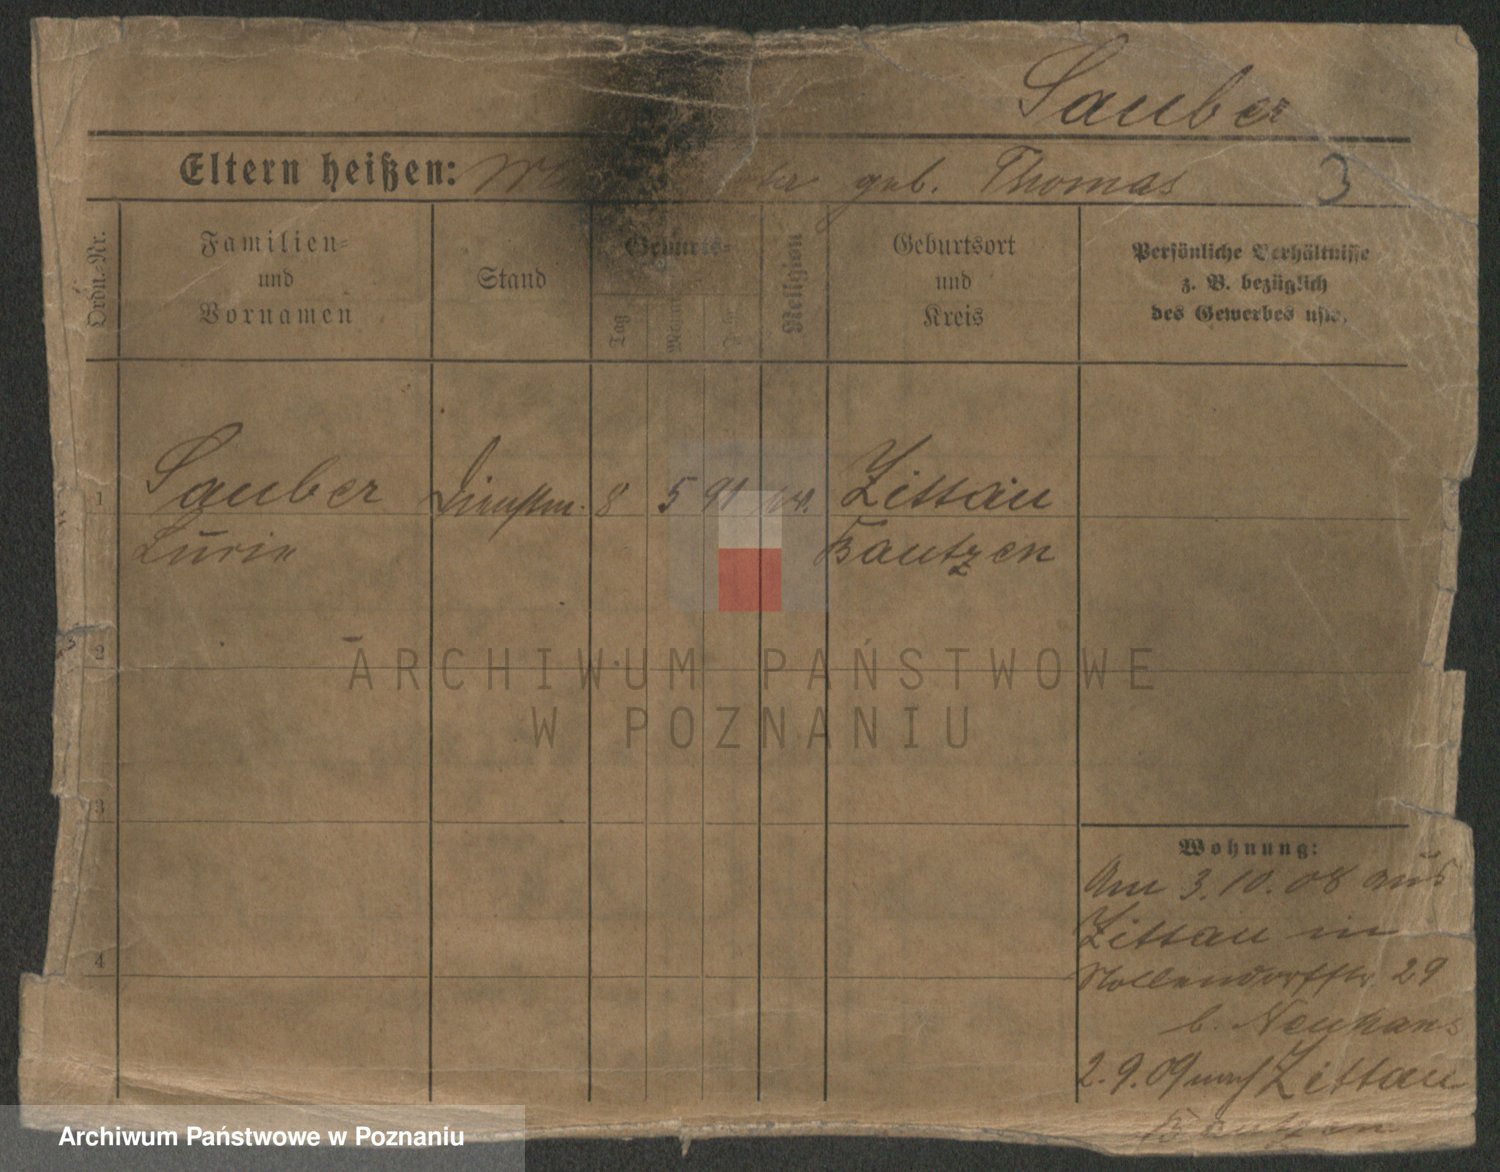 Sauber
Eltern heißen: geb. Thomas 3
Ordn.-Nr.
Familien-
und
Vornamen
Stand
Geburts-
Tag
Monat
Jahr
Religion
Geburtsort
und
Kreis
Persönliche Verhältnisse
z. B. bezüglich
des Gewerbes usw.
1 Sauber Dienstm. 8 5 91 Zittau
Bautzen
2
ARCHIWUM PAŃSTWOWE
W POZNANIU
3
Wohnung:
Am 3.10.08 aus
Zittau in
4
Nollendorfstr. 29
b. Neuhaus
2.9.09 nach Zittau
Bautzen
Archiwum Państwowe w Poznaniu